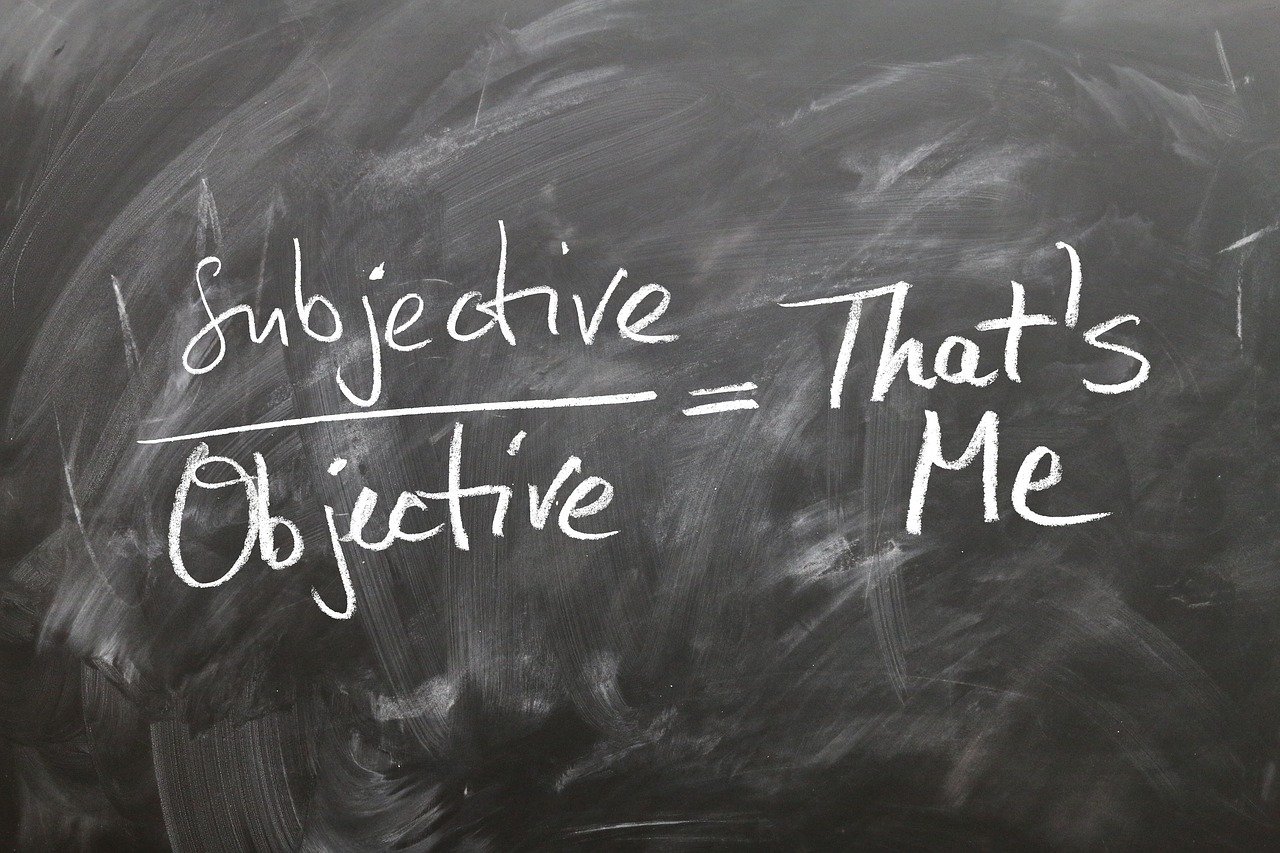 Subjective
Objective
= That's
Me